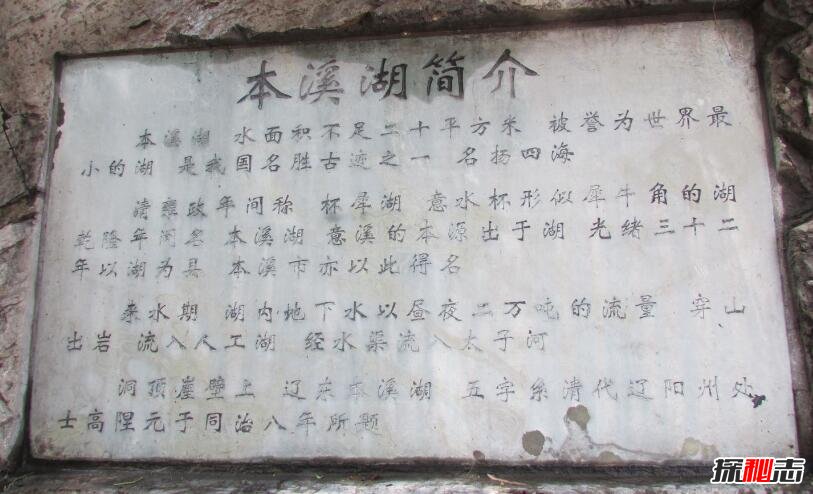 本溪湖简介
本溪湖 水面积不足二十平方米 被誉为世界最
小的湖 是我国名胜古迹之一 名扬四海
清雍政年间称 杯犀湖 意水杯形似犀牛角的湖
乾隆年间名 本溪湖 意溪的本源出于湖 光绪三十二
年以湖为县 本溪市亦以此得名
来水期 湖内地下水以昼夜二万吨的流量 穿山
出岩 流入人工湖 经水渠流入太子河
洞顶崖壁上 辽东本溪湖 五字系清代辽阳州处
士高陧元于同治八年所题
探秘志